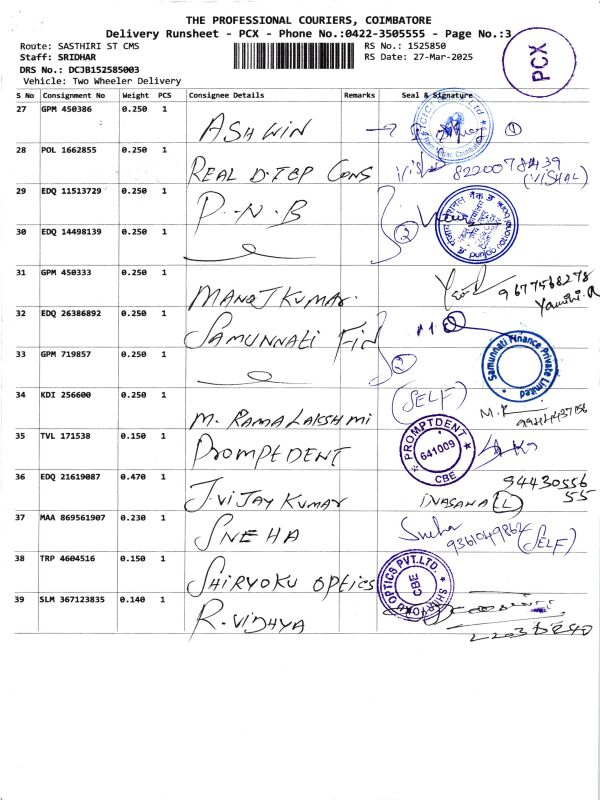 THE PROFESSIONAL COURIERS, COIMBATORE
Delivery Runsheet - PCX - Phone No.:0422-3505555 - Page No.:3
Route: SASTHIRI ST CMS
RS No.: 1525850
Staff: SRIDHAR
RS Date: 27-Mar-2025
DRS No.: DCJB152585003
Vehicle: Two Wheeler Delivery
PCX
S No Consignment No Weight PCS Consignee Details Remarks Seal & Signature
27 GPM 450386 0.250 1 ASHWIN 1
28 POL 1662855 0.250 1 REAL DTCP CONS 8220078439
(VISHAL)
29 EDQ 11513729 0.250 1 P.N.B 2
punjab national bank
30 EDQ 14498139 0.250 1
31 GPM 450333 0.250 1 MANOJ KUMAR. 9677568278
Yamini.R
32 EDQ 26386892 0.250 1 SAMUNNATI FIN
Samunnati Finance Private Limited
33 GPM 719857 0.250 1 2
34 KDI 256600 0.250 1 M. RAMALAKSHMI (SELF) 9944437156
35 TVL 171538 0.150 1 PROMPTDENT
PROMPTDENT 641009 CBE
36 EDQ 21619087 0.470 1 J. VIJAY KUMAR 9443055655
37 MAA 869561907 0.230 1 SNEHA Sneha (SELF)
38 TRP 4604516 0.150 1 SHIRYOKU OPTICS
SHIRYOKU OPTICS PVT.LTD. CBE
39 SLM 367123835 0.140 1 R. VIDHYA